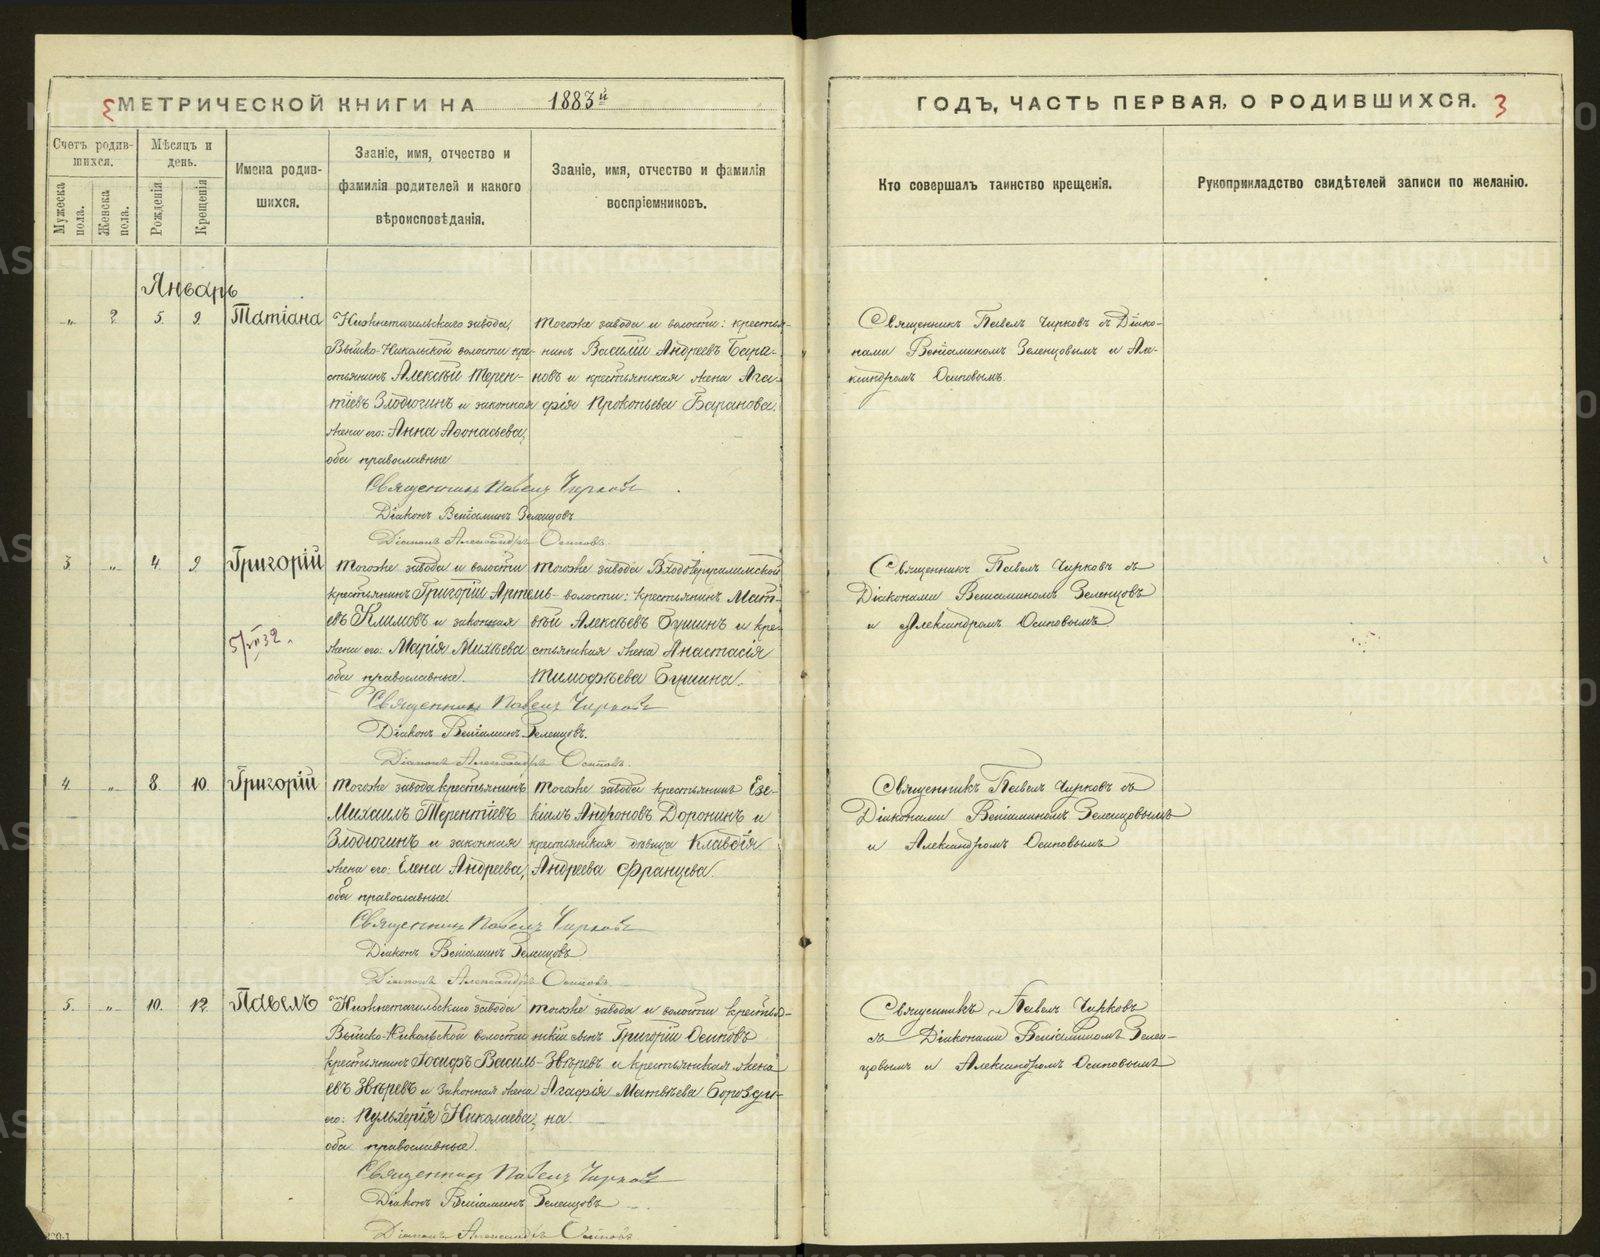 МЕТРИЧЕСКОЙ КНИГИ НА 1883й
ГОДЪ, ЧАСТЬ ПЕРВАЯ, О РОДИВШИХСЯ. 3
Счетъ родив-
шихся.
Мужеска пола.
Женска пола.
Мѣсяцъ и
день.
Рожденія
Крещенія
Имена родив-
шихся.
Званіе, имя, отчество и
фамилія родителей и какого
вѣроисповѣданія.
Званіе, имя, отчество и фамилія
воспріемниковъ.
Кто совершалъ таинство крещенія.
Рукоприкладство свидѣтелей записи по желанію.
Январь
„ 2 5. 9. Татіана
Нижнетагильскаго завода,
Выйско-Никольской волости кре-
стьянинъ Алексѣй Терен-
тіевъ Злодюгинъ и законная
жена его: Анна Аѳонасьева,
оба православные
тогоже завода и волости: крестья-
нинъ Василій Андреевъ Бара-
новъ и крестьянская жена Ага-
фія Прокопьева Баранова.
Священникъ Павелъ Чирковъ съ Діако-
нами Веніаминомъ Зеленцовымъ и Але-
ксандромъ Осиповымъ.
Священникъ Павелъ Чирковъ
Діаконъ Веніаминъ Зеленцовъ
Діаконъ Александръ Осиповъ.
3. „ 4. 9. Григорій
5/VII 32.
тогоже завода и волости
крестьянинъ Григорій Артемь-
евъ Климовъ и законная
жена его: Марія Михѣева
оба православные.
тогоже завода Входоіерусалимской
волости: крестьянинъ Мат-
вѣй Алексѣевъ Бушинъ и кре-
стьянская жена Анастасія
Тимофѣева Бушина.
Священникъ Павелъ Чирковъ съ
Діаконами Веніаминомъ Зеленцовъ
и Александромъ Осиповымъ
Священникъ Павелъ Чирковъ
Діаконъ Веніаминъ Зеленцовъ.
Діаконъ Александръ Осиповъ.
4. „ 8. 10. Григорій
тогоже завода крестьянинъ
Михаилъ Терентіевъ
Злодюгинъ и законная
жена его: Елена Андреева,
оба православные.
тогоже завода крестьянинъ Езе-
кіилъ Андроновъ Доронинъ и
крестьянская дѣвица Клавдія
Андреева Францева.
Священникъ Павелъ Чирковъ съ
Діаконами Веніаминомъ Зеленцовымъ
и Александромъ Осиповымъ
Священникъ Павелъ Чирковъ
Діаконъ Веніаминъ Зеленцовъ
Діаконъ Александръ Осиповъ
5. „ 10. 12. Павелъ
Нижнетагильскаго завода
Выйско-Никольской волости
крестьянинъ Іосифъ Василь-
евъ Звѣревъ и законная жена
его: Пульхерія Николаева,
оба православные.
тогоже завода и волости крестья-
нскій сынъ Григорій Осиповъ
Звѣревъ и крестьянская жена
Агафія Матвѣева Бороздин-
на.
Священникъ Павелъ Чирковъ
съ Діаконами Веніаминомъ Зелен-
цовымъ и Александромъ Осиповымъ
Священникъ Павелъ Чирковъ
Діаконъ Веніаминъ Зеленцовъ
Діаконъ Александръ Осиповъ
METRIKI.GASO-URAL.RU